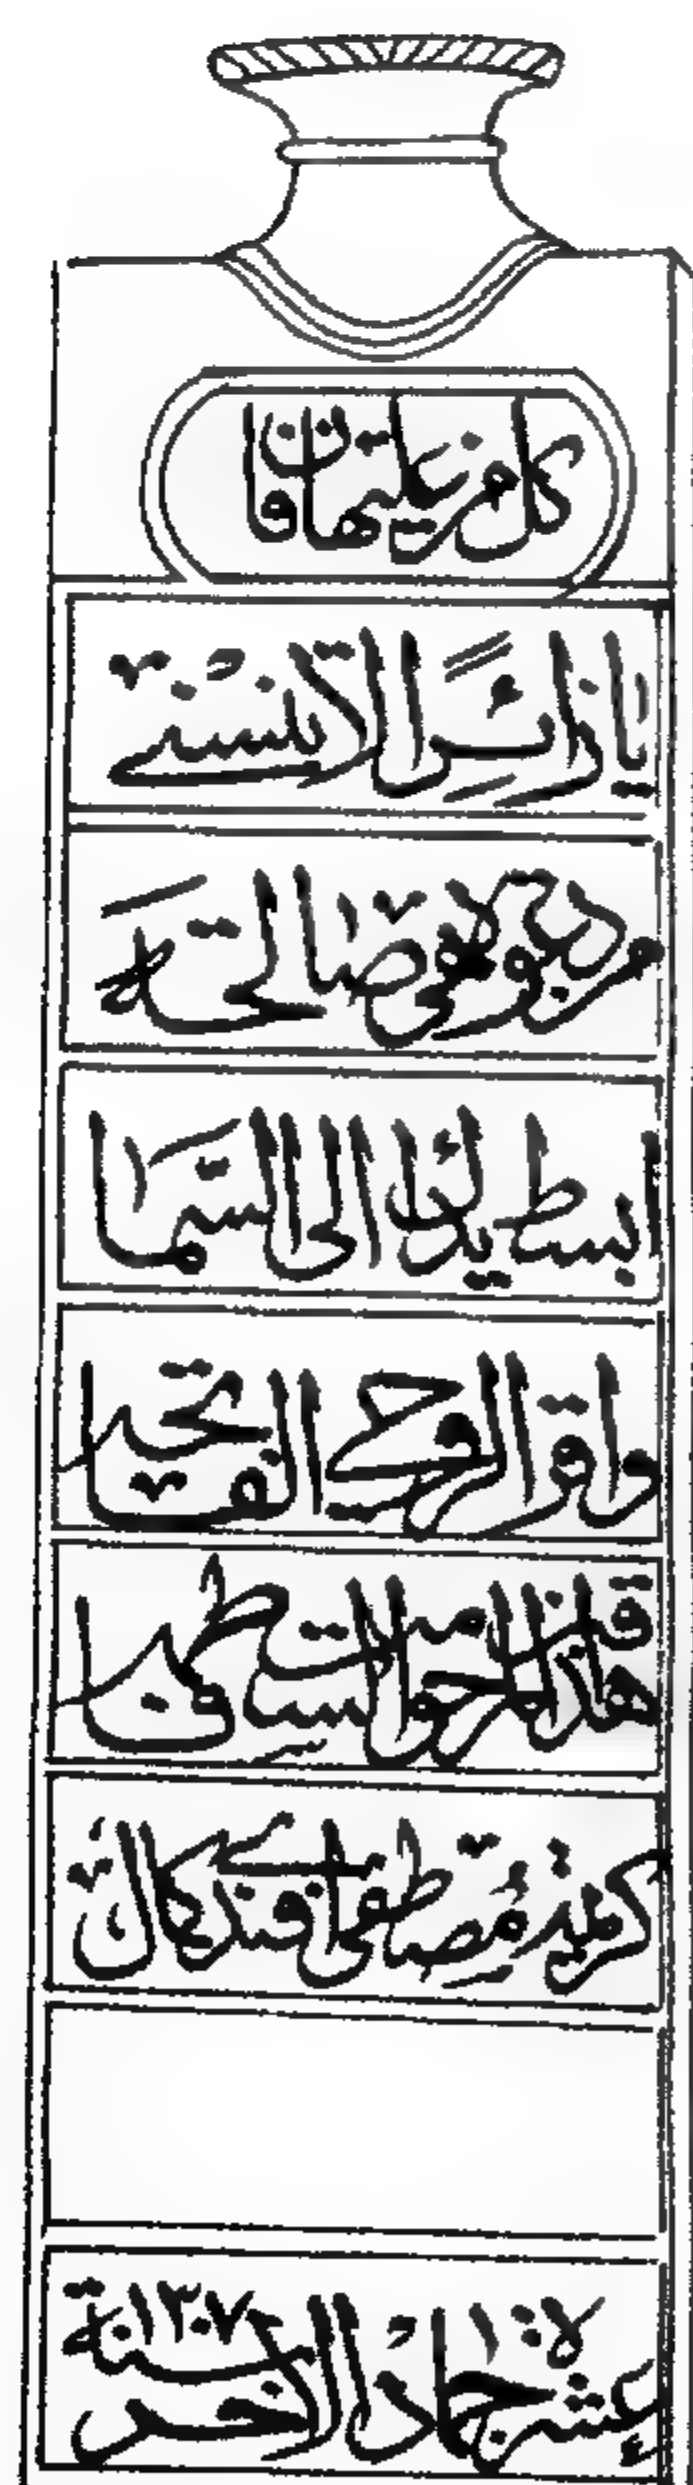 كل من عليها فان
يا زائرا لا تنسني
من دعوة لي صالحة
ابسط يدك الى السما
واقرا لروحي الفاتحة
هذا قبر المرحومة الست فاطمة
كريمة مصطفى افندي كمال
١٠ جماد الاخر سنة ١٣٠٧